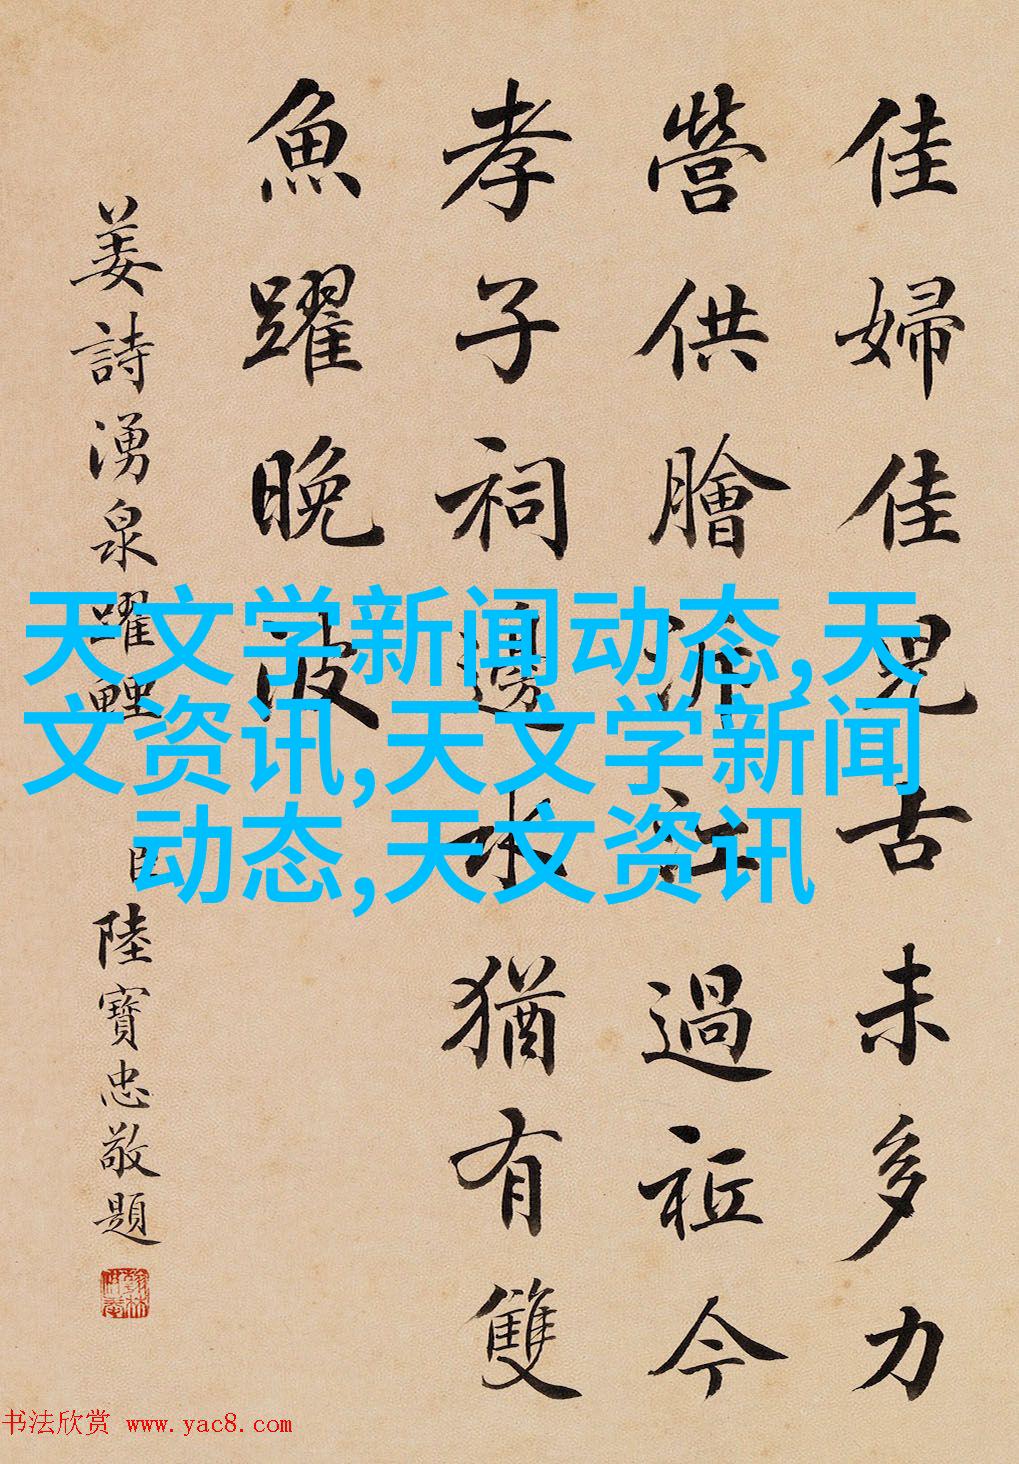 佳婦佳兒古未多力
營供膾泝江過祗今
孝子祠邊水猶有雙
魚躍晚波
姜詩湧泉躍鯉
臣陸寶忠敬題
天文学新闻动态,天
文资讯,天文学新闻
动态,天文资讯
书法欣赏 www.yac8.com